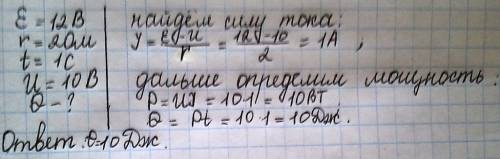 ℰ = 12 В
r = 2 Ом
t = 1С
U = 10 В
Q - ?
найдём силу тока:
У = ℰ-U / r = 12-10 / 2 = 1А ;
дальше определим мощность:
P = UI = 10·1 = 10ВТ
Q = Pt = 10·1 = 10Дж.
Ответ: Q-10 Дж.